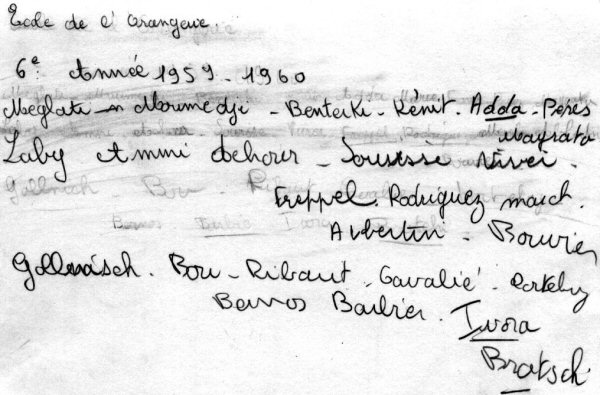 Ecole de l'orangerie.
6e Année 1959-1960
Meglati - Moumedji - Benterki - Rénit. Adda - Pérès
Mayrata
Zaby Ammi Achour - Soussie Niver.
Freppel. Rodriguez march.
Aubertin - Bouvier
Gollnisch. Bou - Ribaut - Cavalié -
Bernos Barbier. Ivora
Bratsch